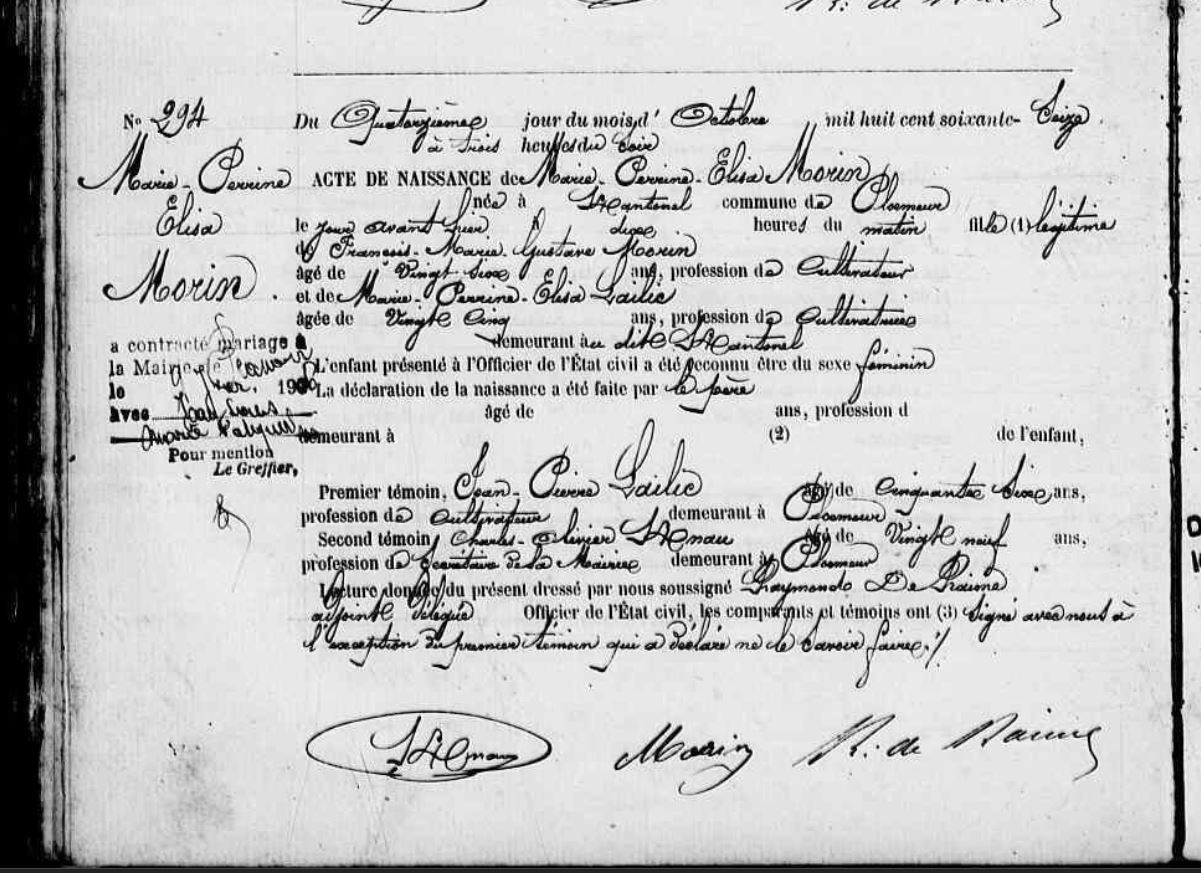 R. de Raimé
No 294
Du Quatorzième jour du mois d' Octobre mil huit cent soixante- Seize
à trois heures du Soir
Marie-Perrine
Elisa
Morin
ACTE DE NAISSANCE de Marie-Perrine-Elisa Morin
née à commune de Ploemeur
le jour avant hier à dix heures du matin fille (1) légitime
de François-Marie Gustave Morin
âgé de Vingt-six ans, profession de Cultivateur
et de Marie-Perrine-Elisa
âgée de Vingt Cinq ans, profession de Cultivatrice
demeurant au dit
L'enfant présenté à l'Officier de l'État civil a été reconnu être du sexe féminin
La déclaration de la naissance a été faite par le père
âgé de ans, profession d
demeurant à (2) de l'enfant,
a contracté mariage à
la Mairie
le 190
avec Jean Louis
Marie
Pour mention
Le Greffier,
Premier témoin, Jean-Pierre âgé de Cinquante Six ans,
profession de Cultivateur demeurant à Ploemeur
Second témoin, Charles-Olivier âgé de Vingt neuf ans,
profession de Secrétaire de la Mairie demeurant à Ploemeur
Lecture donnée du présent dressé par nous soussigné Raymond De Raimé
adjoint délégué Officier de l'État civil, les comparants et témoins ont (3) Signé avec nous à
l'exception du premier témoin qui a déclaré ne le Savoir faire./
Morin R. de Raimé